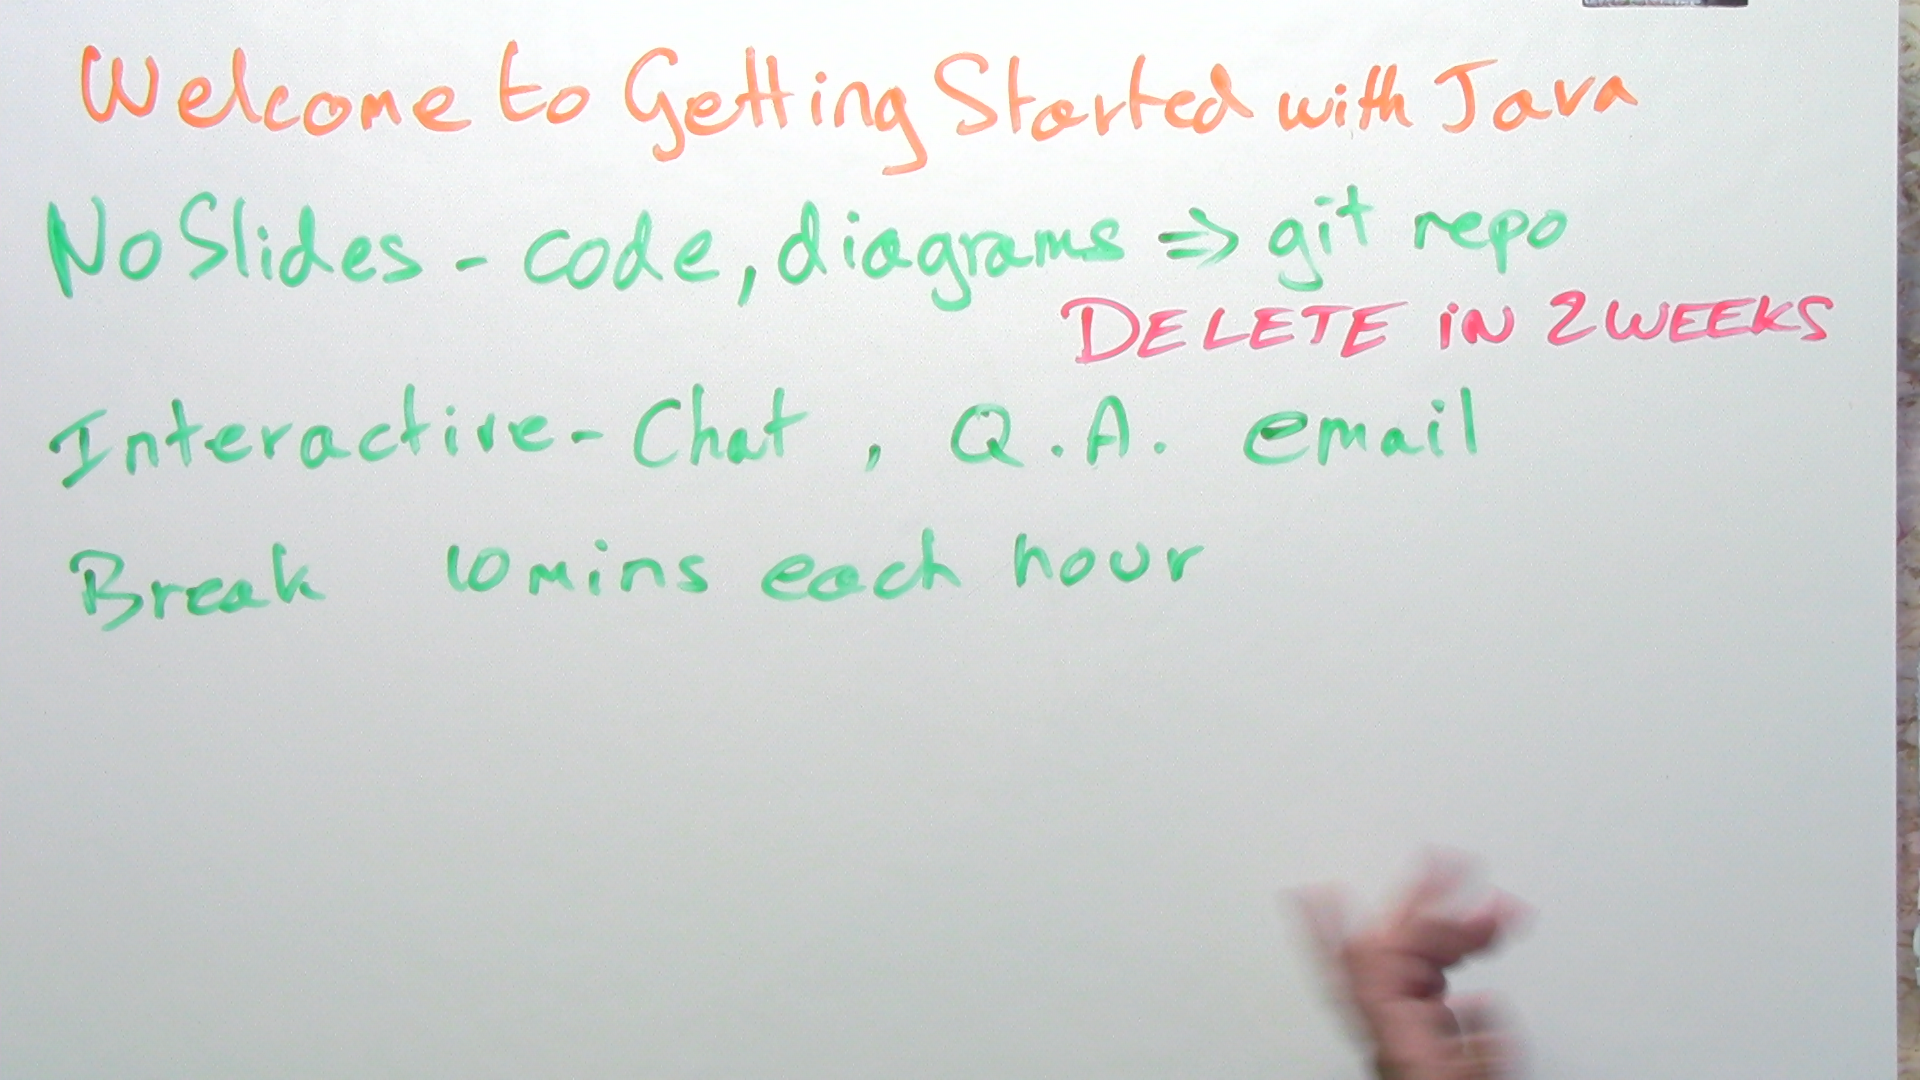 Welcome to Getting Started with Java
No Slides - code, diagrams ⇒ git repo
DELETE IN 2 WEEKS
Interactive - Chat , Q.A. email
Break 10 mins each hour